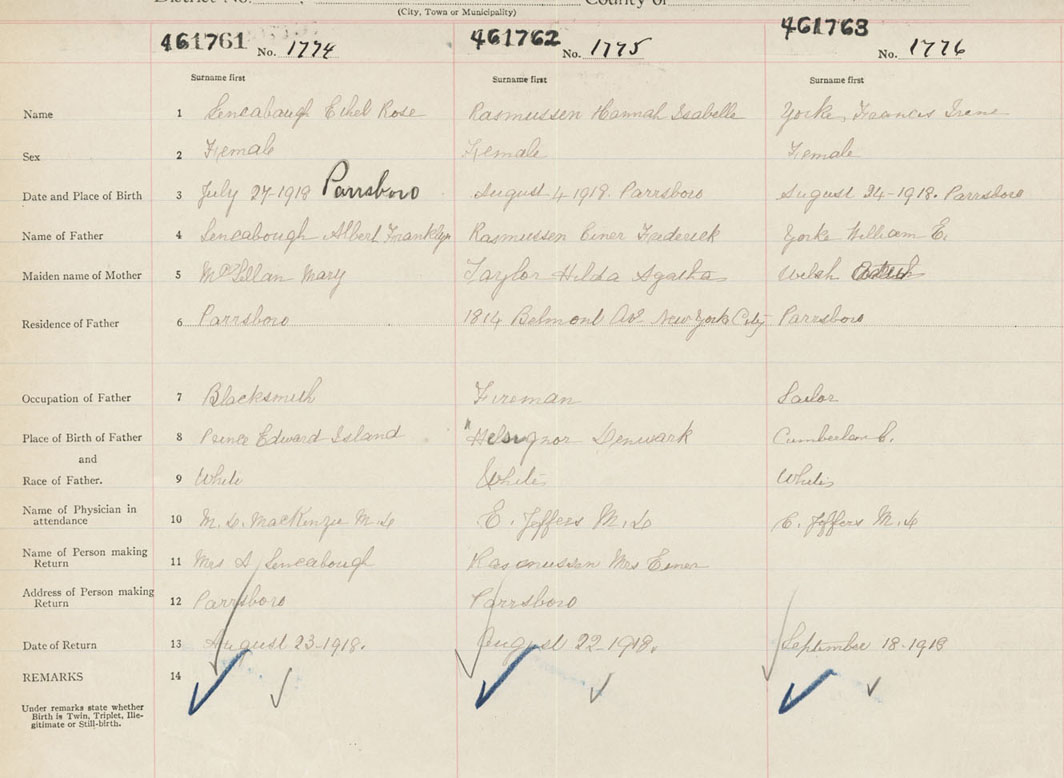 (City, Town or Municipality)
461761 No. 1774 461762 No. 1775 461763 No. 1776
Surname first Surname first Surname first
Name 1 Sencabaugh Ethel Rose Rasmussen Hannah Isabelle Yorke, Frances Irene
Sex 2 Female Female Female
Date and Place of Birth 3 July 27-1918 Parrsboro August 4-1918. Parrsboro August 24-1918. Parrsboro
Name of Father 4 Sencabough Albert Franklyn Rasmussen Einer Frederick Yorke William E.
Maiden name of Mother 5 McLellan Mary Taylor Hilda Agatha Welsh
Residence of Father 6 Parrsboro 1814 Belmont Av. New York City Parrsboro
Occupation of Father 7 Blacksmith Fireman Sailor
Place of Birth of Father 8 Prince Edward Island Denmark Cumberland C.
and
Race of Father. 9 White White White
Name of Physician in
attendance 10 M. D. MacKenzie M.D E. Jeffers M.D E. Jeffers M.D
Name of Person making
Return 11 Mrs A Sencabough Rasmussen Mrs Einer
Address of Person making
Return 12 Parrsboro Parrsboro
Date of Return 13 August 23-1918. August 22-1918. September 18-1918
REMARKS 14
Under remarks state whether
Birth is Twin, Triplet, Ille-
gitimate or Still-birth.